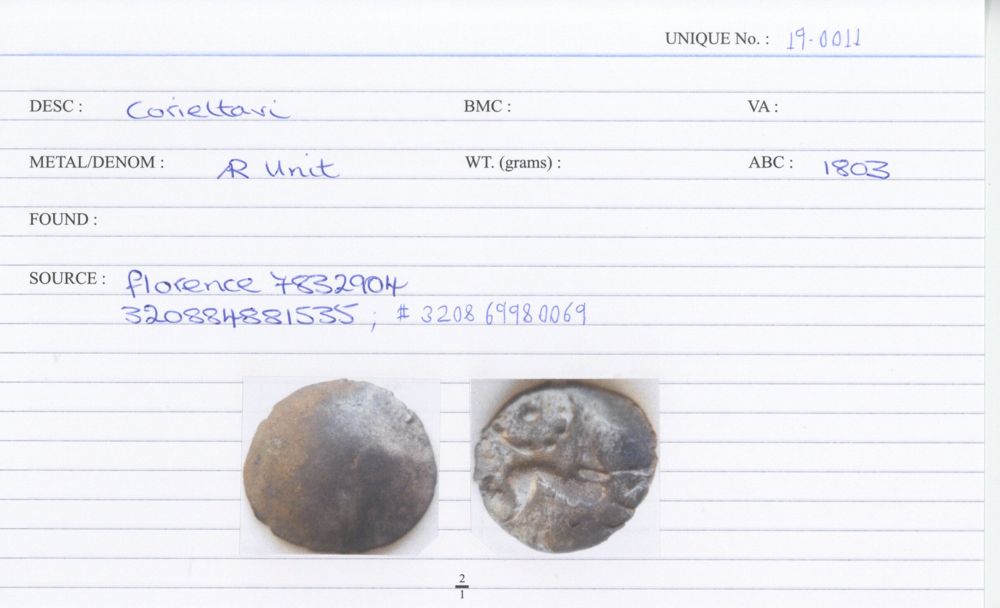 UNIQUE No. : 19-0011
DESC : Corieltavi BMC : VA :
METAL/DENOM : AR Unit WT. (grams) : ABC : 1803
FOUND :
SOURCE : florence 7832904
320884881535 ; # 320869980069
2
1